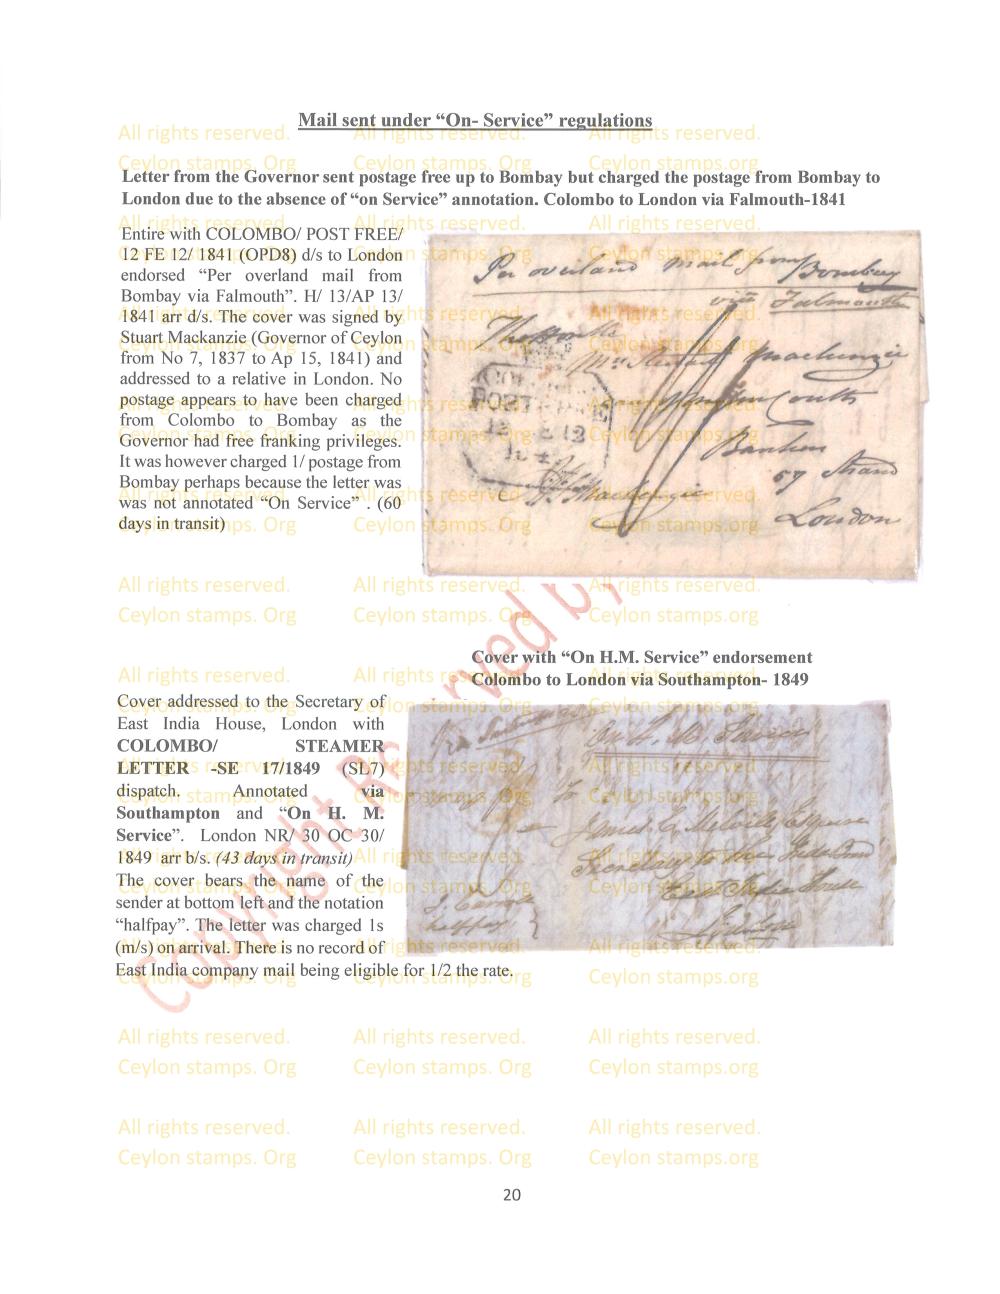 Mail sent under “On- Service” regulations
Letter from the Governor sent postage free up to Bombay but charged the postage from Bombay to
London due to the absence of “on Service” annotation. Colombo to London via Falmouth-1841
Entire with COLOMBO/ POST FREE/
12 FE 12/ 1841 (OPD8) d/s to London
endorsed “Per overland mail from
Bombay via Falmouth”. H/ 13/AP 13/
1841 arr d/s. The cover was signed by
Stuart Mackanzie (Governor of Ceylon
from No 7, 1837 to Ap 15, 1841) and
addressed to a relative in London. No
postage appears to have been charged
from Colombo to Bombay as the
Governor had free franking privileges.
It was however charged 1/ postage from
Bombay perhaps because the letter was
was not annotated “On Service” . (60
days in transit)
Per overland mail from Bombay
via Falmouth
Mackenzie
Coutts
Bankers
59 Strand
London
Cover with “On H.M. Service” endorsement
Colombo to London via Southampton- 1849
Cover addressed to the Secretary of
East India House, London with
COLOMBO/ STEAMER
LETTER -SE 17/1849 (SL7)
dispatch. Annotated via
Southampton and “On H. M.
Service”. London NR/ 30 OC 30/
1849 arr b/s. (43 days in transit)
The cover bears the name of the
sender at bottom left and the notation
“halfpay”. The letter was charged 1s
(m/s) on arrival. There is no record of
East India company mail being eligible for 1/2 the rate.
On H. M. Service
To
James C. Melville Esquire
East India House
London
halfpay
Copyright Reserved by
All rights reserved. All rights reserved. All rights reserved.
Ceylon stamps. Org Ceylon stamps. Org Ceylon stamps.org
20